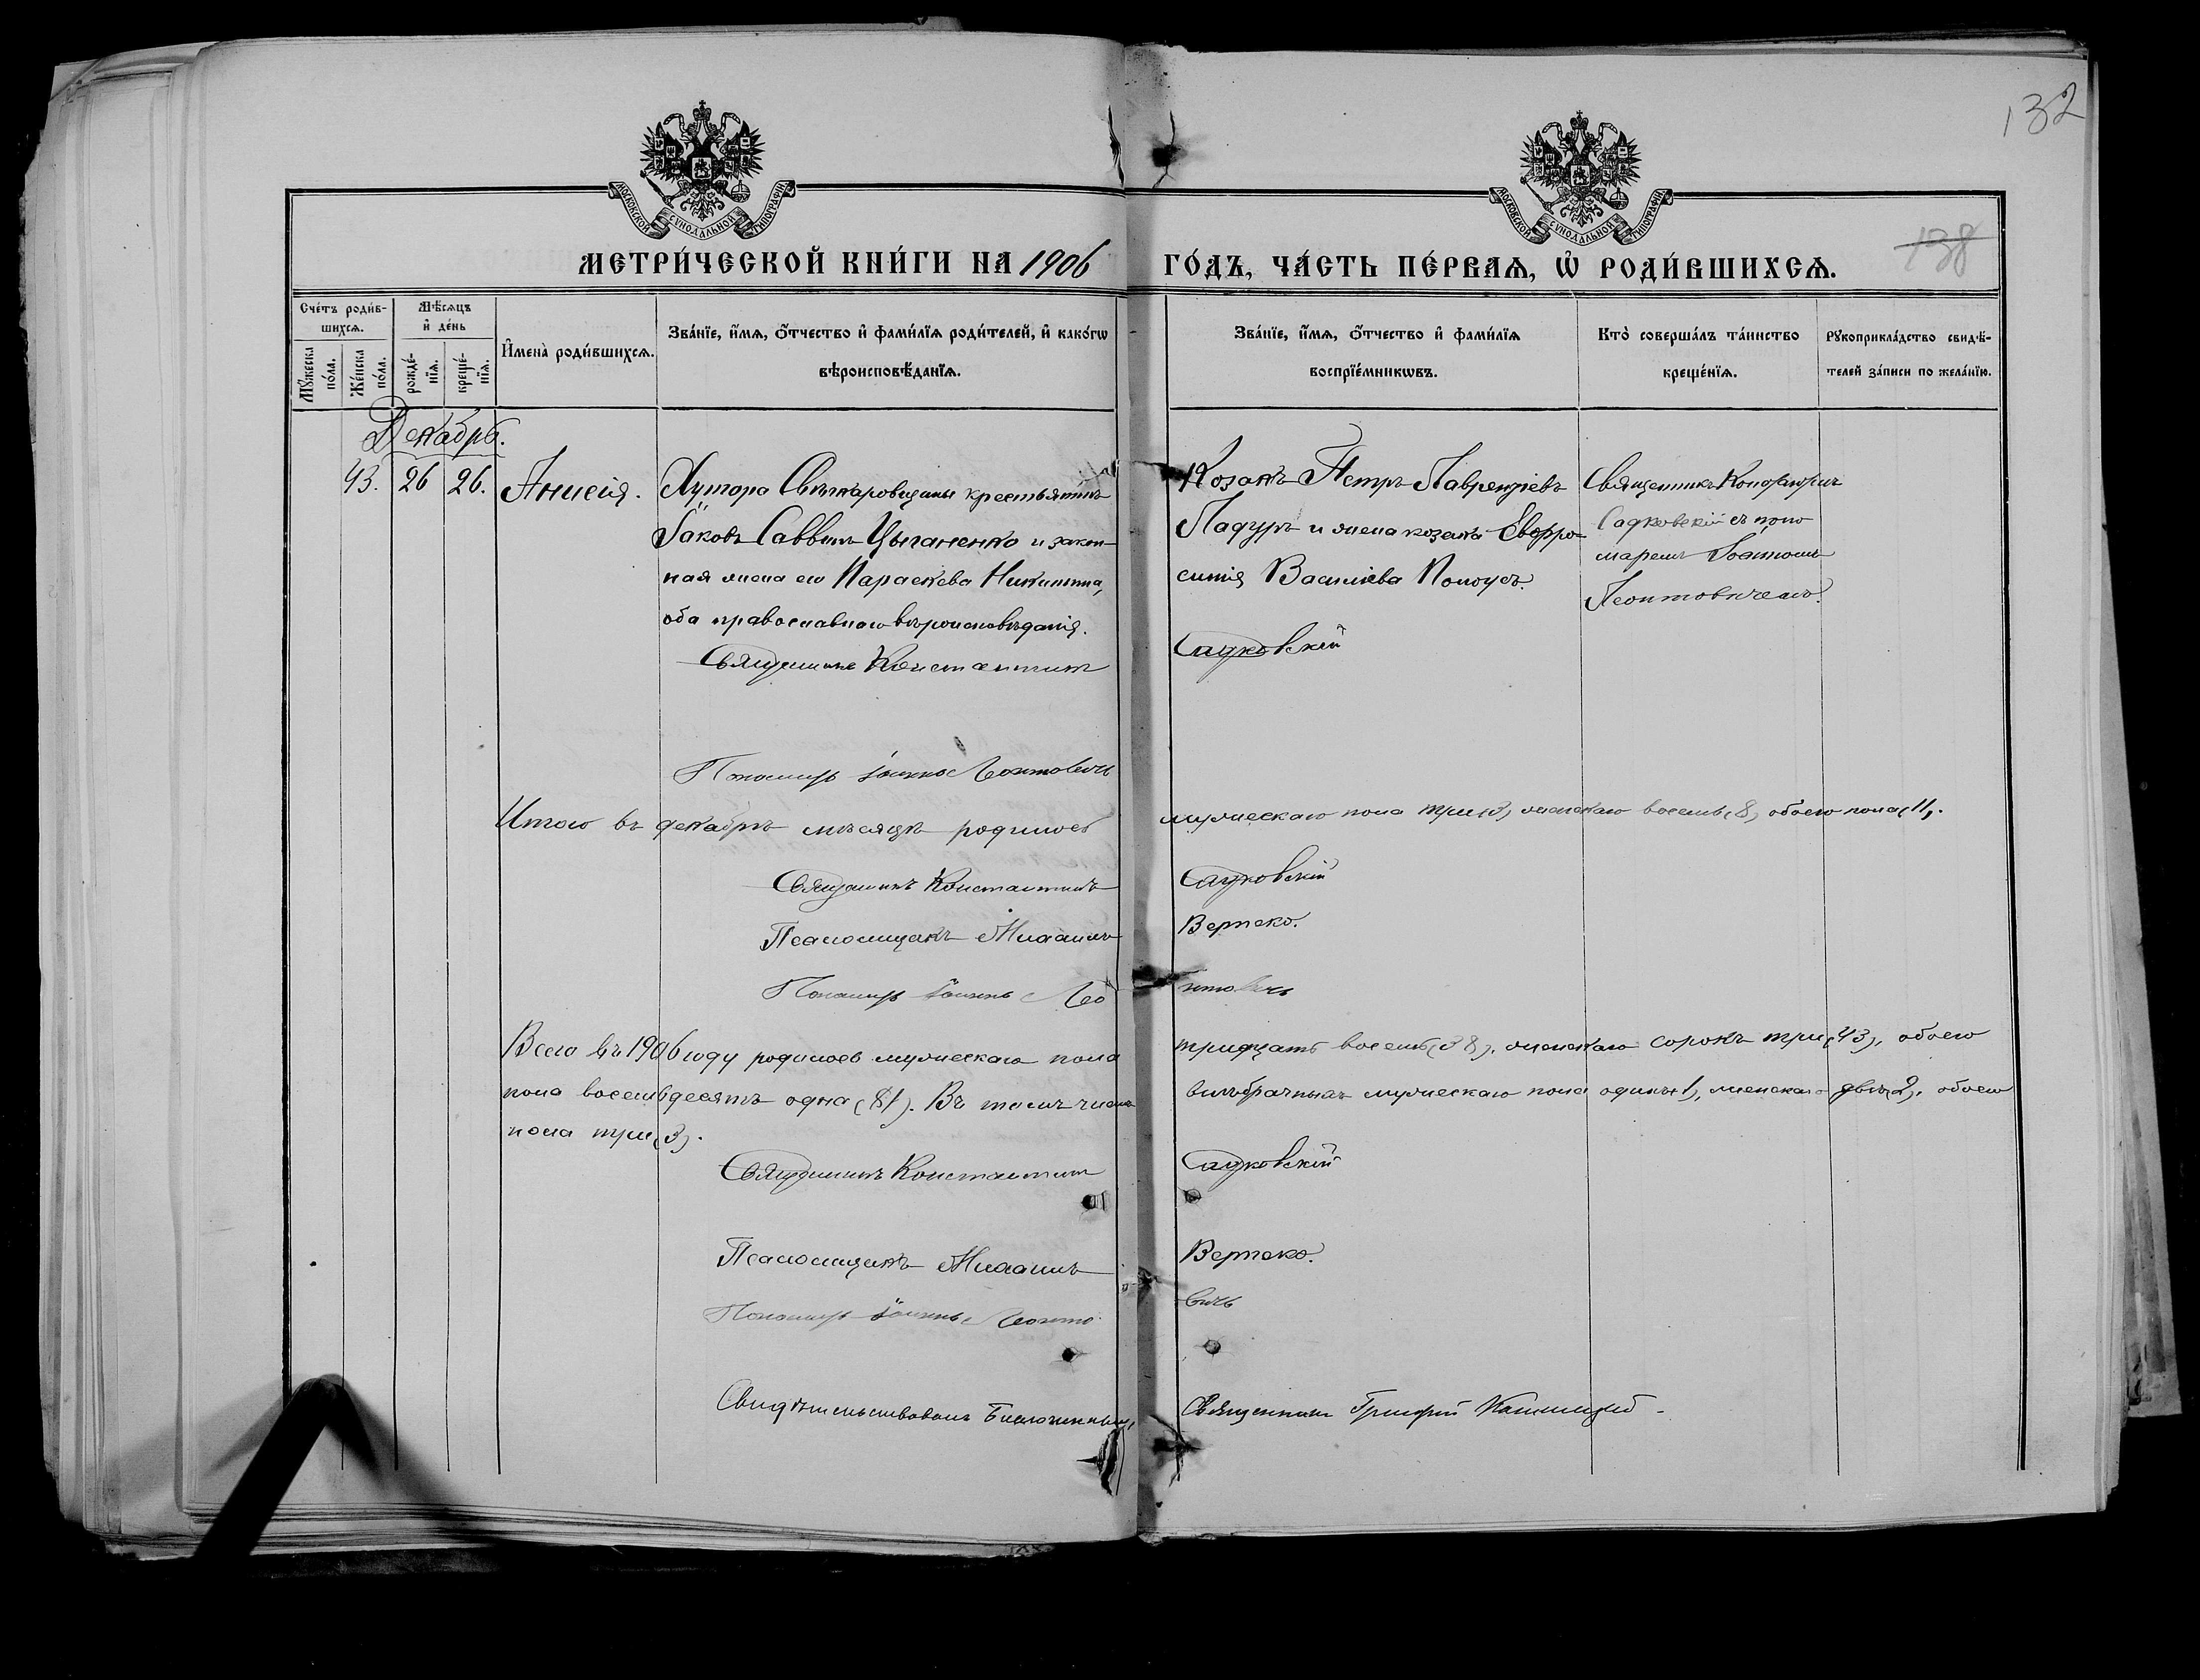 132
МОСКОВСКОЙ СѴНОДАЛЬНОЙ ТИПОГРАФІИ
МОСКОВСКОЙ СѴНОДАЛЬНОЙ ТИПОГРАФІИ
138
МЕТРИ́ЧЕСКОЙ КНИ́ГИ НА 1906 ГО́ДЪ, ЧА́СТЬ ПЕ́РВАѦ, Ѡ҆ РОДИ́ВШИХСѦ.
Сче́тъ роди́в-
шихсѧ.
Мꙋ́жеска по́ла.
Же́нска по́ла.
Мѣ́сѧцъ
и҆ де́нь
рожде́-
нїѧ.
креще́-
нїѧ.
И҆мена̀ роди́вшихсѧ.
Зва́нїе, и҆́мѧ, ѻ҆́тчество и҆ фами́лїѧ роди́телей, и҆ како́гѡ
вѣроисповѣ́данїѧ.
Зва́нїе, и҆́мѧ, ѻ҆́тчество и҆ фами́лїѧ
воспрїе́мникѡвъ.
Кто̀ соверша́лъ та́инство
креще́нїѧ.
Рꙋкоприкла́дство свидѣ́-
телей за́писи по жела́нїю.
Декабрь.
43. 26 26. Анисія. Хутора крестьянинъ
Іаковъ Саввинъ Цыганенко и закон-
ная жена его Параскева Никитина,
оба православнаго вѣроисповѣданія.
Козакъ Петръ Лаврентіевъ
Ладуръ и жена козака Евфро-
синія Василіева
Священникъ
Садковскій съ поно
маремъ Іоанномъ
Леонтовичемъ.
Священникъ Константинъ Садковскій
Пономарь Іоаннъ Леонтовичъ
Итого въ декабрѣ мѣсяцѣ родилось мужескаго пола три (3), женскаго восемь (8), обоего пола (11).
Священникъ Константинъ Садковскій
Псаломщикъ Михаилъ
Пономарь Іоаннъ Леонтовичъ
Всего въ 1906 году родилось мужескаго пола тридцать восемь (38), женскаго сорокъ три (43), обоего
пола восемьдесятъ одна (81). Въ томъ числѣ внѣбрачныхъ мужескаго пола одинъ (1), женскаго двѣ (2), обоего
пола три (3).
Священникъ Константинъ Садковскій
Псаломщикъ Михаилъ
Пономарь Іоаннъ Леонтовичъ
Свидѣтельствовалъ Благочинный, Священникъ Григорій